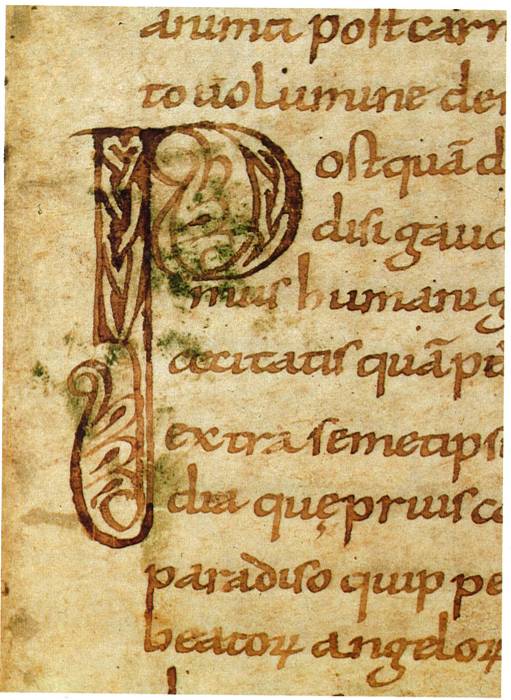 anima post carn
to uolumine de
Postquā d
disi gaud
mus humani g
cecitatis quā pa
extra semetips
dia quę prius co
paradiso quippe
beatoꝝ angeloꝝ